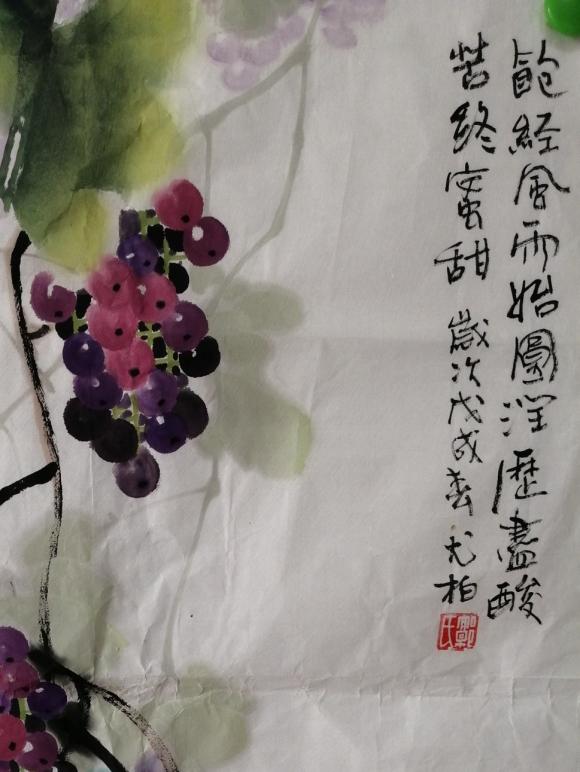 飽經風雨始圓潤歷盡酸
苦終蜜甜 歲次戊戌春尤柏
鄭氏